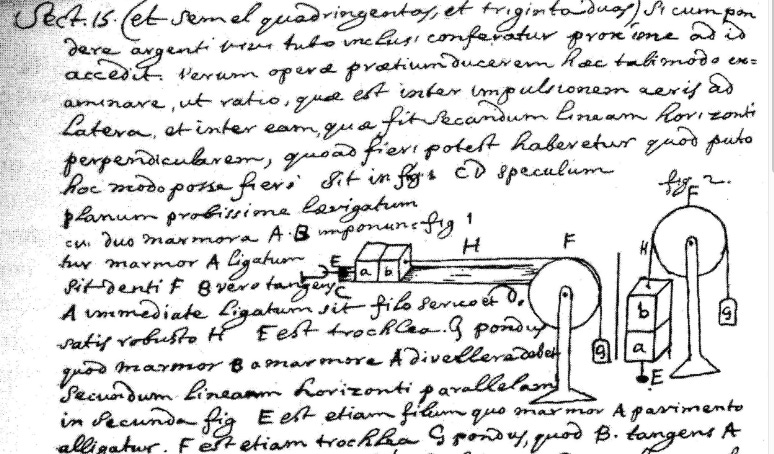 Sect. 15. (et semel quadringentas, et triginta duas) Si cum pon
dere argenti vivi tubo inclusi conferatur proxime ad id
accedit. Verum operæ prætium ducerem hæc tali modo ex=
aminare, ut ratio, quæ est inter impulsionem aeris ad
latera, et inter eam, quæ fit secundum lineam horizonti
perpendicularem, quoad fieri potest haberetur quod puto
hoc modo posse fieri Sit in fig 1 CD speculum
planum probissime lævigatum
cui duo marmora A. B imponun
tur marmor A ligatum
sit denti F B vero tangens
A immediate ligatum sit filo serico et
satis robusto H E est trochlea. G pondus
quod marmor B a marmore A divellere debet
secundum lineam horizonti parallelam
in secunda fig E est etiam filum quo marmor A pavimento
alligatur. F est etiam trochlea G pondus, quod B. tangens A
fig 1
E
a
b
H
F
C
D.
g
fig 2.
F
H
b
a
E
g